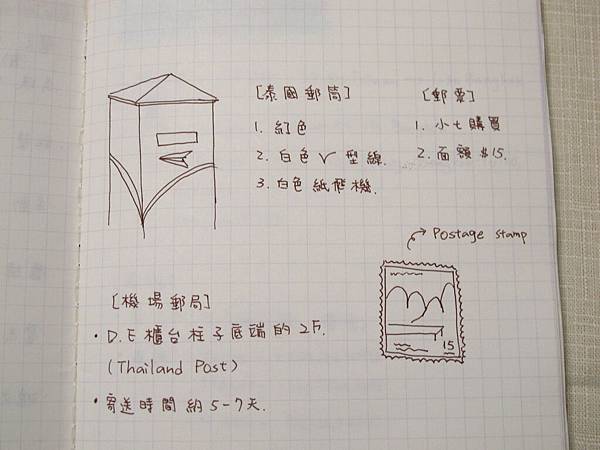 [泰國郵筒]
1. 紅色
2. 白色 V 型線.
3. 白色紙飛機.
[郵票]
1. 小七購買
2. 面額 $15.
Postage stamp
15
[機場郵局]
· D. E 櫃台柱子底端的 2F.
(Thailand Post)
· 寄送時間約 5-7天.